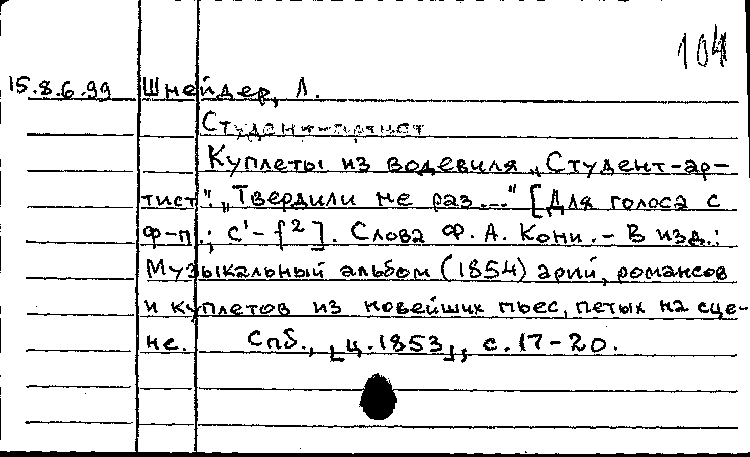 104
15.8.6.99 Шнейдер, Л.
Студент-артист
Куплеты из водевиля „Студент-ар-
тист": „Твердили не раз..." [Для голоса с
ф-п.; c'-f²]. Слова Ф. А. Кони. - В изд.:
Музыкальный альбом (1854) арий, романсов
и куплетов из новейших пьес, петых на сце-
не. Спб., [ц. 1853], с. 17-20.